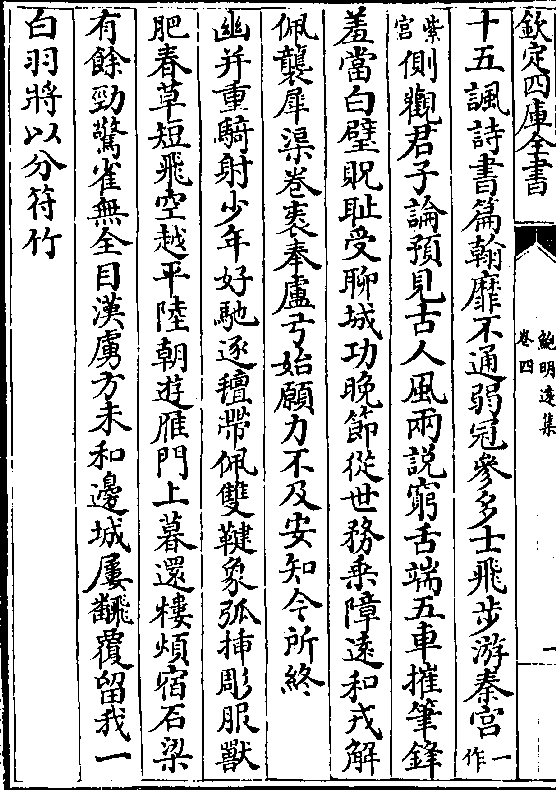 欽定四庫全書
鮑明遠集
卷四
十五諷詩書篇翰靡不通弱冠參多士飛步游秦宫一作
紫宫側觀君子論預見古人風兩説窮舌端五車摧筆鋒
羞當白璧貺耻受聊城功晚節從世務乗障遠和戎解
佩襲犀渠卷袠奉盧弓始願力不及安知今所終
幽并重騎射少年好馳逐氊帶佩雙鞬象弧揷彫服獸
肥春草短飛空越平陸朝遊雁門上暮還樓煩宿石梁
有餘勁驚雀無全目漢虜方未和邊城屢飜覆留我一
白羽將以分符竹